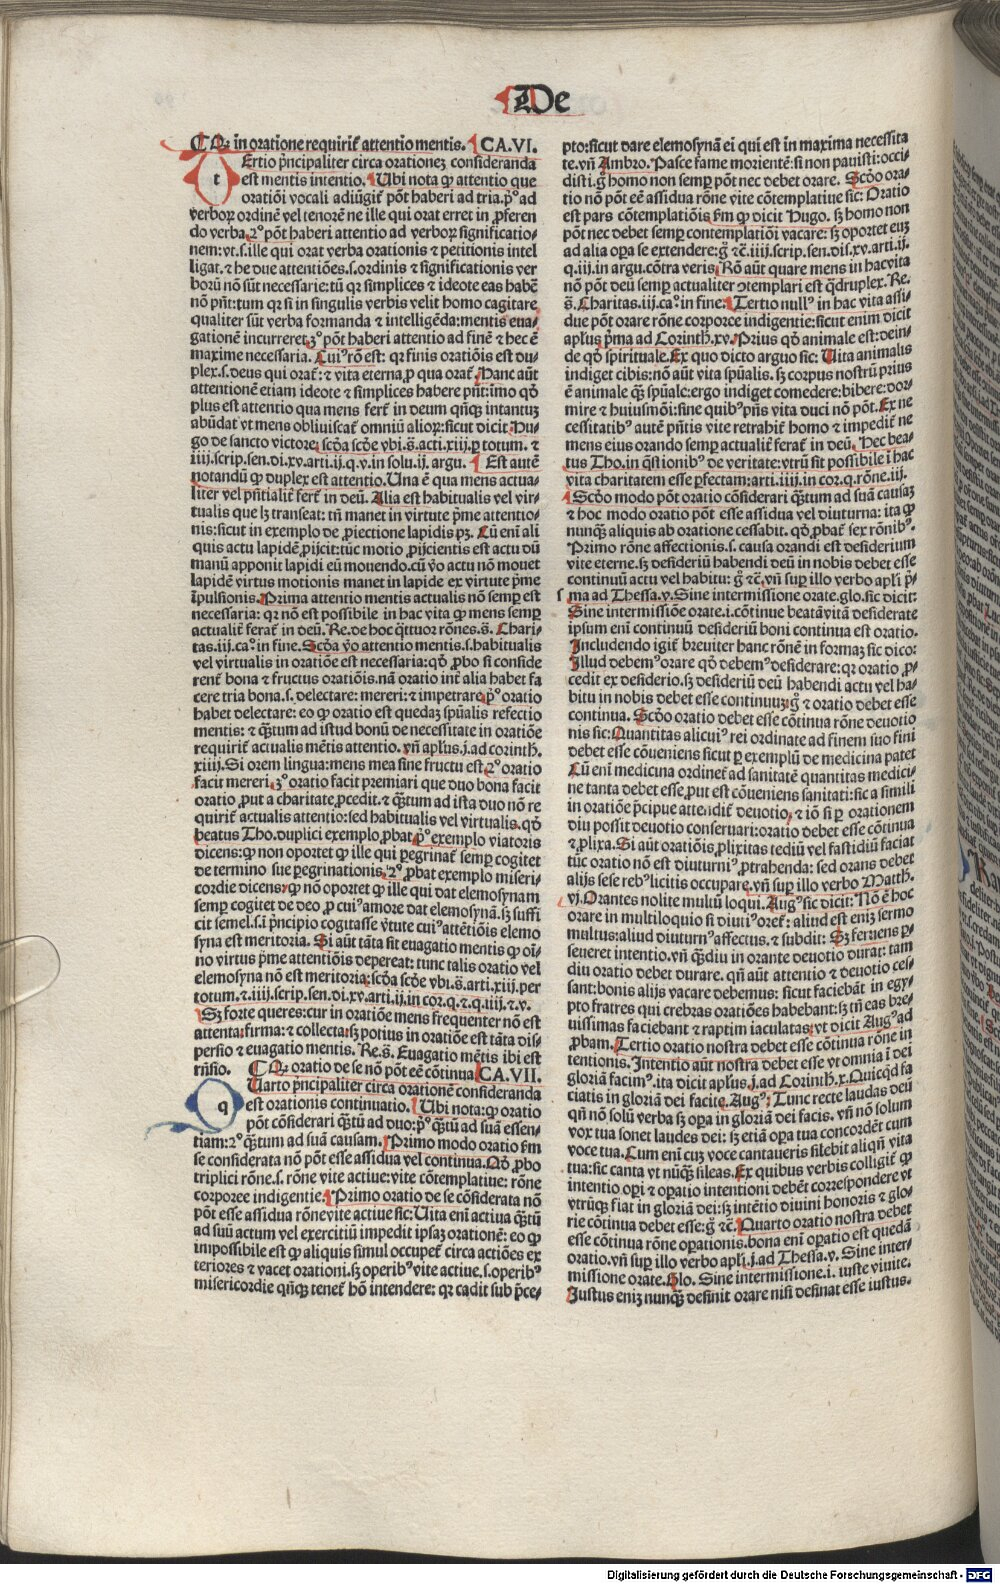 De
¶ Qꝛ in oratione requirit̃ attentio mentis. ¶ CA.VI.
TErtio p̃ncipaliter circa orationeȝ consideranda
est mentis intentio. Ubi nota ꝙ attentio que
oratiõi vocali adiũgit̃ põt haberi ad tria. pꝰ ad
verboꝝ ordinẽ vel tenorẽ ne ille qui orat erret in ꝓferen
do verba. 2ꝰ põt haberi attentio ad verboꝝ significatio-
nem: vt.s. ille qui orat verba orationis ⁊ petitionis intel
ligat. ⁊ he due attentiões.s. ordinis ⁊ significationis ver
borũ nõ sũt necessarie: tñ qꝛ simplices ⁊ ideote eas habẽ
nõ pñt: tum qꝛ si in singulis verbis velit homo cagitare
qualiter sũt verba formanda ⁊ intelligẽda: mentis eua-
gationẽ incurreret. 3ꝰ põt haberi attentio ad finẽ ⁊ hec ẽ
maxime necessaria. Cuiꝰ rõ est: qꝛ finis oratiõis est du-
plex.s. deus qui orat̃: ⁊ vita eterna ꝓ qua orat̃. Hanc aũt
attentionẽ etiam ideote ⁊ simplices habere pñt: imo qñ
plus est attentio qua mens fert̃ in deum qñqȝ intantuȝ
abũdat vt mens obliuiscat̃ omniũ alioꝝ: sicut dicit Hu-
go de sancto victore: scḋa scḋe vbi.s̃. arti.xiij. ꝑ totum. ⁊
iiij. scrip. sen. di. xv. arti. ij. q. v. in solu. ij. argu. ¶ Est autẽ
notandũ ꝙ duplex est attentio. Una ẽ qua mens actua-
liter vel pñtialit̃ fert̃ in deũ. Alia est habitualis vel vir-
tualis que lȝ transeat: tñ manet in virtute p̃me attentio-
nis: sicut in exemplo de ꝓiectione lapidis pȝ. Cũ eñi ali
quis actu lapidẽ ꝓijcit: tũc motio ꝓijcientis est actu dũ
manũ apponit lapidi eũ mouendo. cũ ṽo actu nõ mouet
lapidẽ virtus motionis manet in lapide ex virtute p̃me
ĩpulsionis. Prima attentio mentis actualis nõ semꝑ est
necessaria: qꝛ nõ est possibile in hac vita ꝙ mens semꝑ
actualit̃ ferat̃ in deũ. Re. de hoc q̃ttuor rõnes.s̃. Chari-
tas.iij. caꝰ. in fine. Scḋa ṽo attentio mentis.s. habitualis
vel virtualis in oratiõe est necessaria: qḋ ꝓbo si conside
rent̃ bona ⁊ fructus oratiõis. nã oratio int̃ alia habet fa
cere tria bona.s. delectare: mereri: ⁊ impetrare. pꝰ oratio
habet delectare: eo ꝙ oratio est quedaȝ spũalis refectio
mentis: ⁊ q̃tum ad istud bonũ de necessitate in oratiõe
requirit̃ actualis mẽtis attentio. vñ aplus. j. ad corinth.
xiiij. Si orem lingua: mens mea sine fructu est. 2ꝰ oratio
facit mereri. 3ꝰ oratio facit premiari que duo bona facit
oratio ꝓut a charitate ꝓcedit. ⁊ q̃tum ad ista duo nõ re
quirit̃ actualis attentio: sed habitualis vel virtualis. qḋ
beatus Tho. duplici exemplo ꝓbat. pꝰ exemplo viatoris
dicens: ꝙ non oportet ꝙ ille qui peregrinat̃ semꝑ cogitet
de termino sue ꝑegrinationis. 2ꝰ ꝓbat exemplo miseri-
cordie dicens: ꝙ nõ oportet ꝙ ille qui dat elemosynam
semꝑ cogitet de deo ꝓ cuiꝰ amore dat elemosynã. sȝ suffi
cit semel.s. i p̃ncipio cogitasse ṽtute cuiꝰ attẽtiõis elemo
syna est meritoria. Si aũt tãta sit euagatio mentis ꝙ oĩ-
no virtus p̃me attentiõis depereat: tunc talis oratio vel
elemosyna nõ est meritoria: scḋa scḋe vbi.s̃. arti. xiij. per
totum. ⁊. iiij. scrip. sen. di. xv. arti. ij. in cor. q. ⁊. q. iiij. ⁊. v.
Sȝ forte queres: cur in oratiõe mens frequenter nõ est
attenta: firma: ⁊ collecta: sȝ potius in oratiõe est tãta dis-
persio ⁊ euagatio mentis. Re.s̃. Euagatio mẽtis ibi est
rñsio. ¶ Qꝛ oratio de se nõ põt eẽ cõtinua ¶ CA.VII.
QUarto p̃ncipaliter circa orationẽ consideranda
est orationis continuatio. Ubi nota: ꝙ oratio
põt cõsiderari q̃tũ ad duo: pꝰ q̃tũ ad suã essen-
tiam: 2ꝰ q̃tum ad suã causam. Primo modo oratio s̃m
se considerata nõ põt esse assidua vel continua. Qḋ ꝓbo
triplici rõne.s. rõne vite actiue: vite cõtemplatiue: rõne
corporee indigentie. Primo oratio de se cõsiderata nõ
põt esse assidua rõne vite actiue sic: Uita eñi actiua q̃tũ
ad suũ actum vel exercitiũ impedit ipsaȝ orationẽ: eo ꝙ
impossibile est ꝙ aliquis simul occupet̃ circa actiões ex
teriores ⁊ vacet orationi. sȝ operibꝰ vite actiue.s. operibꝰ
misericordie qñqȝ tenet̃ hõ intendere: qꝛ cadit sub p̃ce-
pto: sicut dare elemosynã ei qui est in maxima necessita
te. vñ Ambro. Pasce fame morientẽ: si non pauisti: occi-
disti. g̃ homo non semꝑ põt nec debet orare. Scḋo ora-
tio nõ põt eẽ assidua rõne vite cõtemplatiue sic: Oratio
est pars cõtemplatiõis s̃m ꝙ dicit Hugo. sȝ homo non
põt nec debet semꝑ contemplatiõi vacare: sȝ oportet euȝ
ad alia oꝑa se extendere: g̃ ⁊c̃. iiij. scrip. sen. dis. xv. arti. ij.
q. iij. in argu. cõtra veris. Rõ aũt quare mens in hac vita
nõ põt deũ semꝑ actualiter ɔtemplari est q̃druplex. Re.
s̃. Charitas. iij. caꝰ. in fine. Tertio nullꝰ in hac vita assi-
due põt orare rõne corporee indigentie: sicut enim dicit
aplus p̃ma ad Corinth. xv. Prius qḋ animale est: dein-
de qḋ spirituale. Ex quo dicto arguo sic: Uita animalis
indiget cibis: nõ aũt vita spũalis. sȝ corpus nostrũ prius
ẽ animale q̃ȝ spũale: ergo indiget comedere: bibere: dor-
mire ⁊ huiusmõi: sine quibꝰ pñs vita duci nõ põt. Ex ne
cessitatibꝰ autẽ pñtis vite retrahit̃ homo ⁊ impedit̃ ne
mens eius orando semꝑ actualit̃ ferat̃ in deũ. Hec bea-
tus Tho. in q̃stionibꝰ de veritate: vtrũ sit possibile ĩ hac
vita charitatem esse ꝑfectam: arti. iiij. in cor. q. rõne. iij.
Scḋo modo põt oratio cõsiderari q̃tum ad suã causaȝ
⁊ hoc modo oratio põt esse assidua vel diuturna: ita ꝙ
nunqȝ aliquis ab oratione cessabit. qḋ ꝓbat̃ sex rõnibꝰ.
Primo rõne affectionis.s. causa orandi est desiderium
vite eterne. sȝ desideriũ habendi deũ in nobis debet esse
continuũ actu vel habitu: g̃ ⁊c̃. vñ suꝑ illo verbo apli p̃-
ma ad Thessa. v. Sine intermissione orate. glo. sic dicit:
Sine intermissiõe orate.i. cõtinue beatã vitã desiderate
ipsum eñi continuũ desideriũ boni continua est oratio.
Includendo igit̃ breuiter hanc rõnẽ in formaȝ sic dico:
Illud debemꝰ orare qḋ debemꝰ desiderare: qꝛ oratio ꝓ-
cedit ex desiderio. sȝ desideriũ deũ habendi actu vel ha-
bitu in nobis debet esse continuuȝ: g̃ ⁊ oratio debet esse
continua. Scḋo oratio debet esse cõtinua rõne deuotio
nis sic: Quantitas alicuiꝰ rei ordinate ad finem suo fini
debet esse cõueniens sicut ꝑ exemplũ de medicina patet
Cũ eñi medicina ordinet̃ ad sanitatẽ quantitas medici-
ne tanta debet esse ꝓut est cõueniens sanitati: sic a simili
in oratiõe p̃cipue attendit̃ deuotio: ⁊ iõ si ꝑ orationem
diu possit deuotio conseruari: oratio debet esse cõtinua
⁊ ꝓlixa. Si aũt oratiõis ꝓlixitas tediũ vel fastidiũ faciat
tũc oratio nõ est diuturniꝰ ꝓtrahenda: sed orans debet
alijs sese rebꝰ licitis occupare. vñ suꝑ illo verbo Matth.
vj. Orantes nolite multũ loqui. Augꝰ sic dicit: Nõ ẽ hoc
orare in multiloquio si diutiꝰ oret̃: aliud est eniȝ sermo
multus: aliud diuturnꝰ affectus. ⁊ subdit: Sȝ feruens ꝑ-
seueret intentio. vñ q̃ȝdiu in orante deuotio durat: tam
diu oratio debet durare. qñ aũt attentio ⁊ deuotio ces-
sant: bonis alijs vacare debemus: sicut faciebãt in egy-
pto fratres qui crebras oratiões habebant: sȝ tñ eas bre-
uissimas faciebant ⁊ raptim iaculatas: vt dicit Augꝰ ad
ꝓbam. Tertio oratio nostra debet esse cõtinua rõne in
tentionis. Intentio aũt nostra debet esse vt omnia ĩ dei
gloriã facimꝰ. ita dicit aplus. j. ad Corinth. x. Quicq̃d fa
ciatis in gloriã dei facite. Augꝰ: Tunc recte laudas deũ
qñ nõ solũ verba sȝ oꝑa in gloriã dei facis. vñ nõ solum
vox tua sonet laudes dei: sȝ etiã oꝑa tua concordẽt cum
voce tua. Cum eñi cuȝ voce cantaueris silebit aliqñ vita
tua: sic canta vt nũqȝ sileas. Ex quibus verbis colligit̃ ꝙ
intentio oꝑi ⁊ oꝑatio intentioni debẽt correspondere vt
vtrũqȝ fiat in gloriã dei: sȝ intẽtio diuini honoris ⁊ glo-
rie cõtinua debet esse: g̃ ⁊c̃. Quarto oratio nostra debet
esse cõtinua rõne oꝑationis. bona eñi oꝑatio est quedã
oratio. vñ suꝑ illo verbo apli. j. ad Thessa. v. Sine inter-
missione orate. Glo. Sine intermissione.i. iuste viuite.
Iustus eniȝ nunqȝ desinit orare nisi desinat esse iustus.
Digitalisierung gefördert durch die Deutsche Forschungsgemeinschaft - DFG